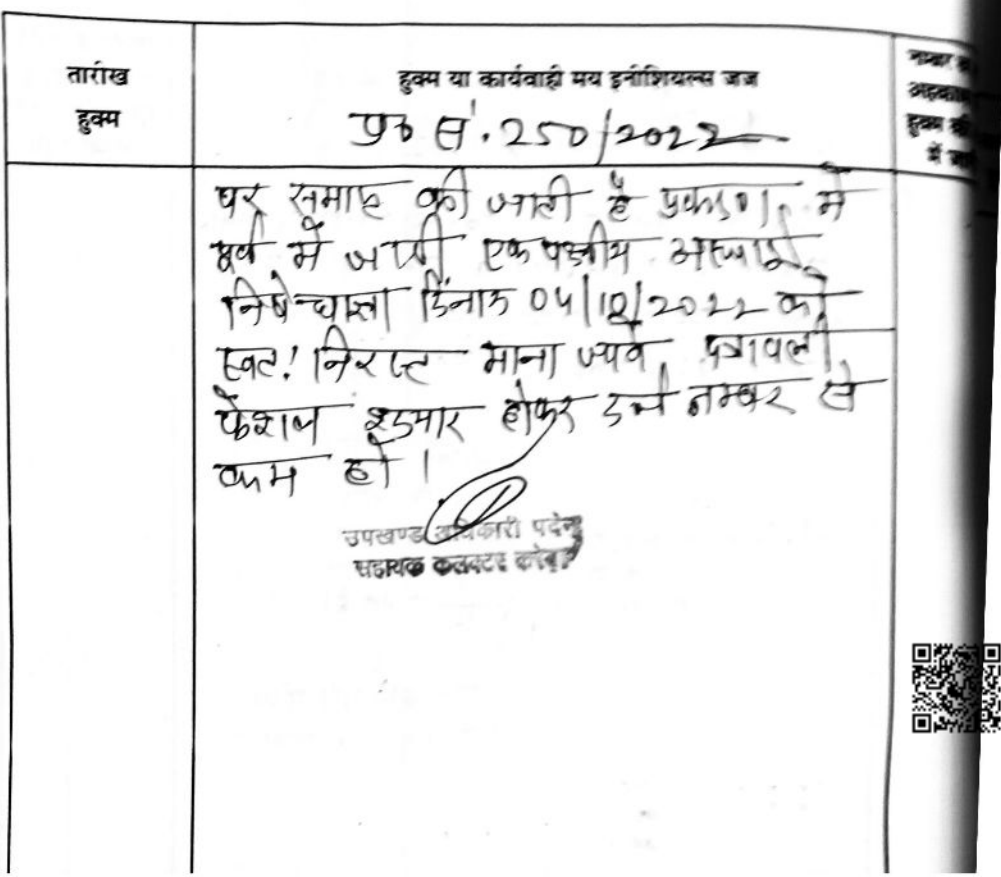 तारीख
हुक्म
हुक्म या कार्यवाही मय इनीशियल्स जज
प्र० सं. 250/2022
नम्बर
अहकाम
हुक्म की
में जा
पर समाप्त की जाती है प्रकरण में
पूर्व में जारी एक पक्षीय अस्थाई
निषेधाज्ञा दिनांक 04/10/2022 को
स्वतः निरस्त माना जावे, पत्रावली
फैशल शुमार होकर दर्ज नम्बर से
कम हो।
उपखण्ड अधिकारी पदेन
सहायक कलक्टर